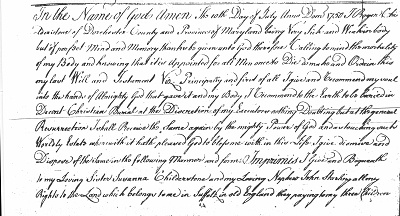 In the Name of God Amen The 10th Day of July Anno Dom: 1750 I Roger
Resident of Dorchester County and Province of Maryland being Very Sick and Weak in body
but of perfect Mind and Memory thanks be given unto God therefore Calling to mind the mortality
of my Body and knowing that it is Appointed for all Men once to Die Do make and Ordain this
my last Will and Testament Viz Principaly and first of all I give and Recommend my soul
into the hands of Almighty God that gave it and my Body I Recommend to the Earth to be buried in
Decent Christian Burial at the Discretion of my Executors nothing Doubting but at the general
Resurrection I shall Receive the Same again by the mighty Power of God and as touching such
Worldly Estate wherewith it hath pleased God to bless me with in this Life I give demise and
Dispose of the same in the following Manner and form Imprimis I Give and Bequeath
to my Loving Sister Susanna Childerstone and my Loving Nephew John Sterling all my
Right to the Land which belongs to me in Suffolk in old England they paying to my three Children